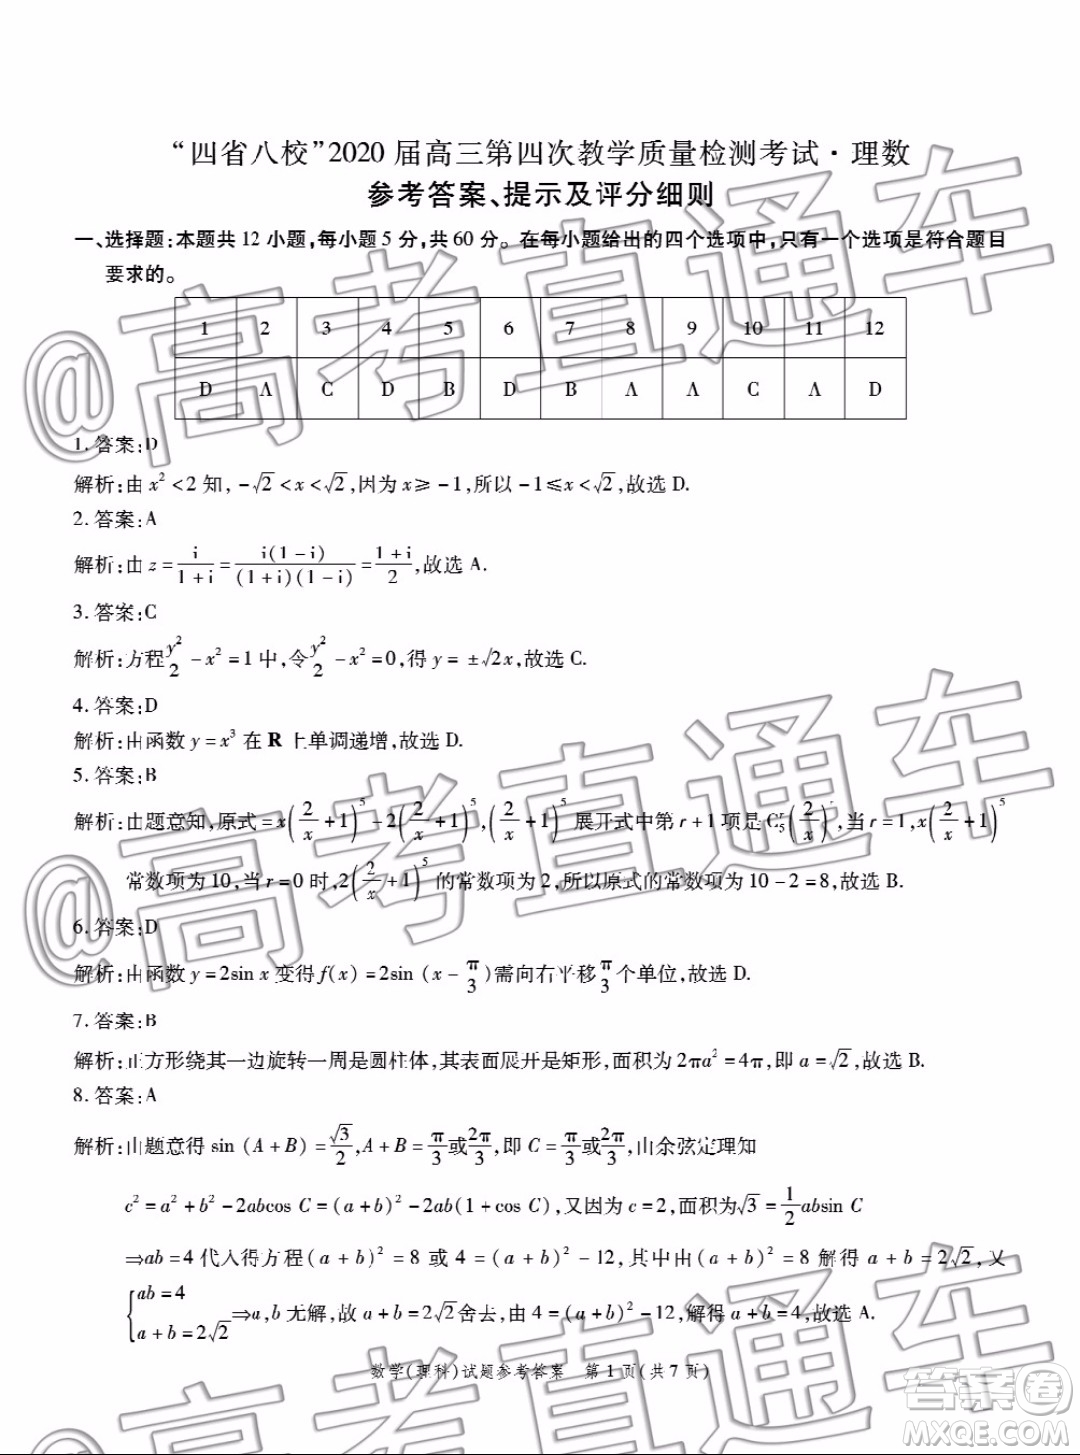 “四省八校”2020届高三第四次教学质量检测考试·理数
参考答案、提示及评分细则
一、选择题:本题共12小题,每小题5分,共60分。在每小题给出的四个选项中,只有一个选项是符合题目
要求的。
1 2 3 4 5 6 7 8 9 10 11 12
D A C D B D B A A C A D
1. 答案:D
解析:由 x²<2 知, -√2<x<√2,因为 x≥-1,所以 -1≤x<√2,故选 D.
2. 答案:A
解析:由 z=i/(1+i)=i(1-i)/((1+i)(1-i))=(1+i)/2,故选 A.
3. 答案:C
解析:方程 y²/2-x²=1中,令 y²/2-x²=0,得 y=±√2x,故选 C.
4. 答案:D
解析:由函数 y=x³ 在 R 上单调递增,故选 D.
5. 答案:B
解析:由题意知,原式=x(2/x+1)⁵-2(2/x+1)⁵,(2/x+1)⁵ 展开式中第 r+1 项是 C₅ʳ(2/x)ʳ,当 r=1,x(2/x+1)⁵
常数项为10,当 r=0时,2(2/x+1)⁵ 的常数项为2,所以原式的常数项为 10-2=8,故选 B.
6. 答案:D
解析:由函数 y=2sin x 变得 f(x)=2sin (x-π/3)需向右平移 π/3 个单位,故选 D.
7. 答案:B
解析:正方形绕其一边旋转一周是圆柱体,其表面展开是矩形,面积为 2πa²=4π,即 a=√2,故选 B.
8. 答案:A
解析:由题意得 sin (A+B)=√3/2,A+B=π/3或2π/3,即 C=π/3或2π/3,由余弦定理知
c²=a²+b²-2abcos C=(a+b)²-2ab(1+cos C),又因为 c=2,面积为√3=1/2absin C
⇒ab=4 代入得方程(a+b)²=8 或 4=(a+b)²-12,其中由(a+b)²=8 解得 a+b=2√2,又
{ab=4
a+b=2√2 ⇒a,b 无解,故 a+b=2√2舍去,由 4=(a+b)²-12,解得 a+b=4,故选 A.
数学(理科)试题参考答案 第1页(共7页)
@高考直通车
@高考直通车
@高考直通车
答案圈
MXQE.COM